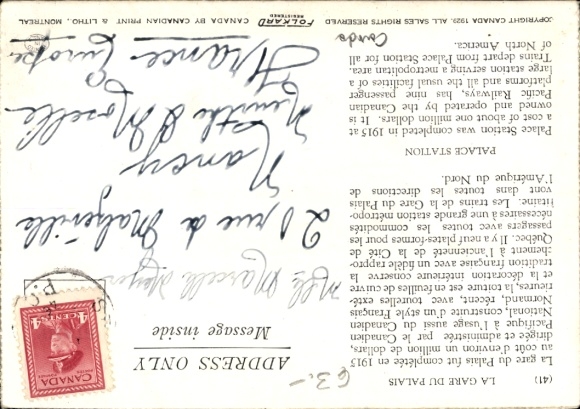 (41) LA GARE DU PALAIS
La gare du Palais fut complétée en 1915
au coût d'environ un million de dollars,
dirigée et administrée par le Canadien
Pacifique à l'usage aussi du Canadien
National, construite d'un style Français
Normand, récent, avec tourelles exté-
rieures, la toiture est en feuilles de cuivre
et la décoration intérieure conserve la
tradition française avec un fidèle rappro-
chement à l'ancienneté de la Cité de
Québec. Il y a neuf plates-formes pour les
passagers avec toutes les commodités
nécessaires à une grande station métropo-
litaine. Les trains de la Gare du Palais
vont dans toutes les directions de
l'Amérique du Nord.
PALACE STATION
Palace Station was completed in 1915 at
a cost of about one million dollars. It is
owned and operated by the Canadian
Pacific Railways, has nine passenger
platforms and all the usual facilities of a
large station serving a metropolitan area.
Trains depart from Palace Station for all
of North America.
63.-
ADDRESS ONLY
Message inside
CANADA
POSTES POSTAGE
4 CENTS 4
Mlle Marcelle
20 rue de Malzéville
Nancy
Meurthe & Moselle
France Europe
COPYRIGHT CANADA 1929, ALL SALES RIGHTS RESERVED
FOLKARD
REGISTERED
CANADA BY CANADIAN PRINT & LITHO., MONTREAL